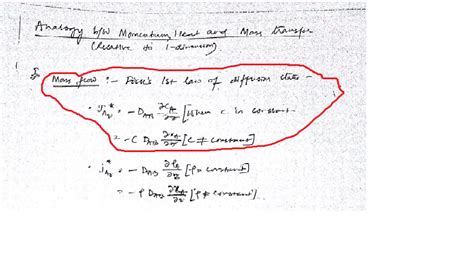 Analogy b/w Momentum, Heat and Mass transfer
(Relative to 1-dimension)
Mass flow :- Fick's 1st law of diffusion states -
J*Az = - DAB ∂CA/∂z [When c is constant
= - C DAB ∂xA/∂z [C ≠ constant]
jAz = - DAB ∂ρA/∂z [ρ = constant]
= - ρ DAB ∂xA/∂z [ρ ≠ constant]